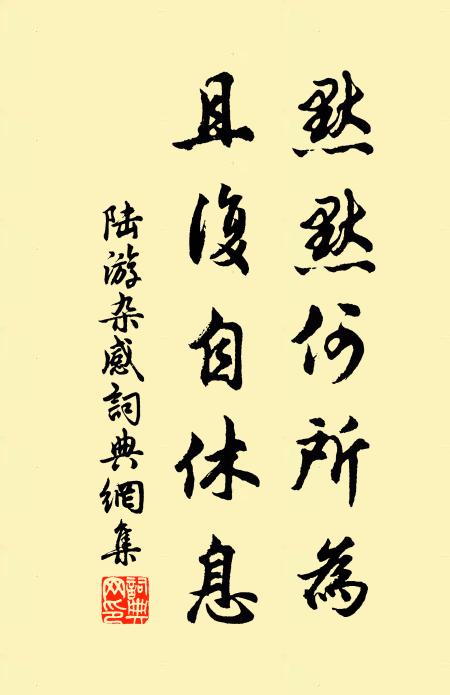 默默何所為
且復自休息
陆游杂感詞典網集
詞典网印